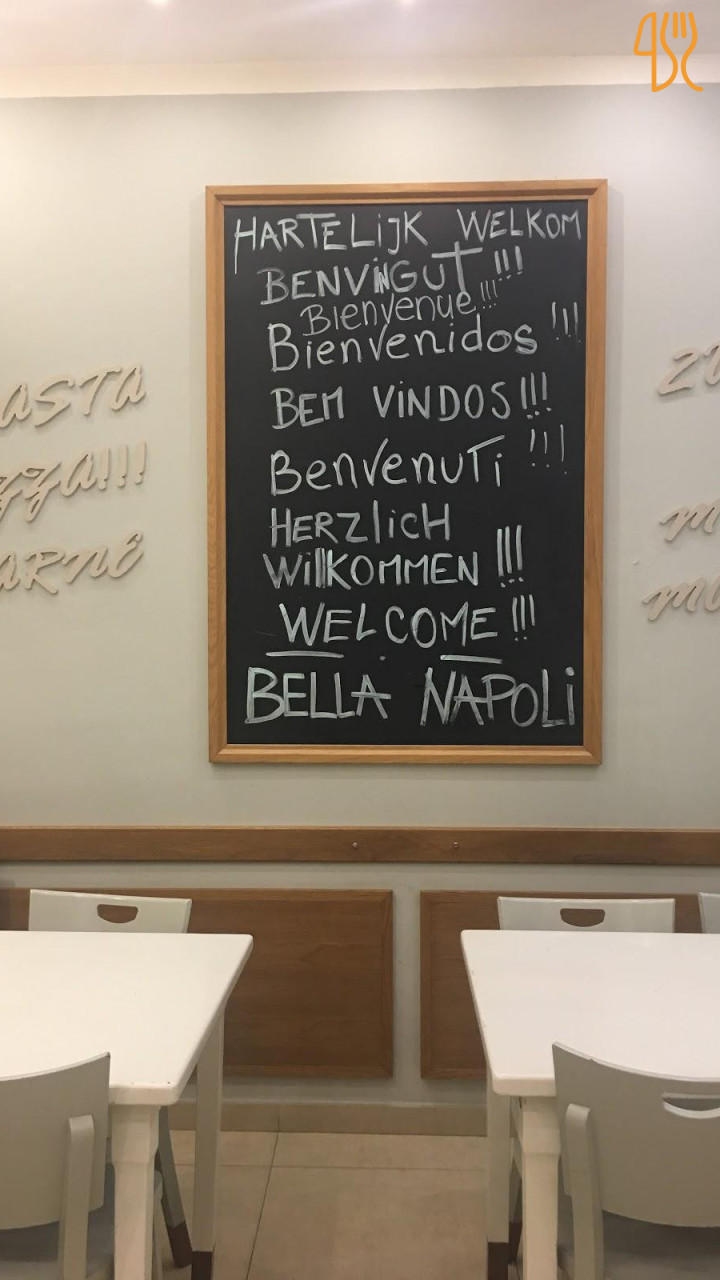 HARTELIJK WELKOM
BENVINGUT !!!
Bienvenue!!!
Bienvenidos !!!
BEM VINDOS!!!
Benvenuti !!!
HERZLICH
WILLKOMMEN !!!
WELCOME !!!
BELLA NAPOLI